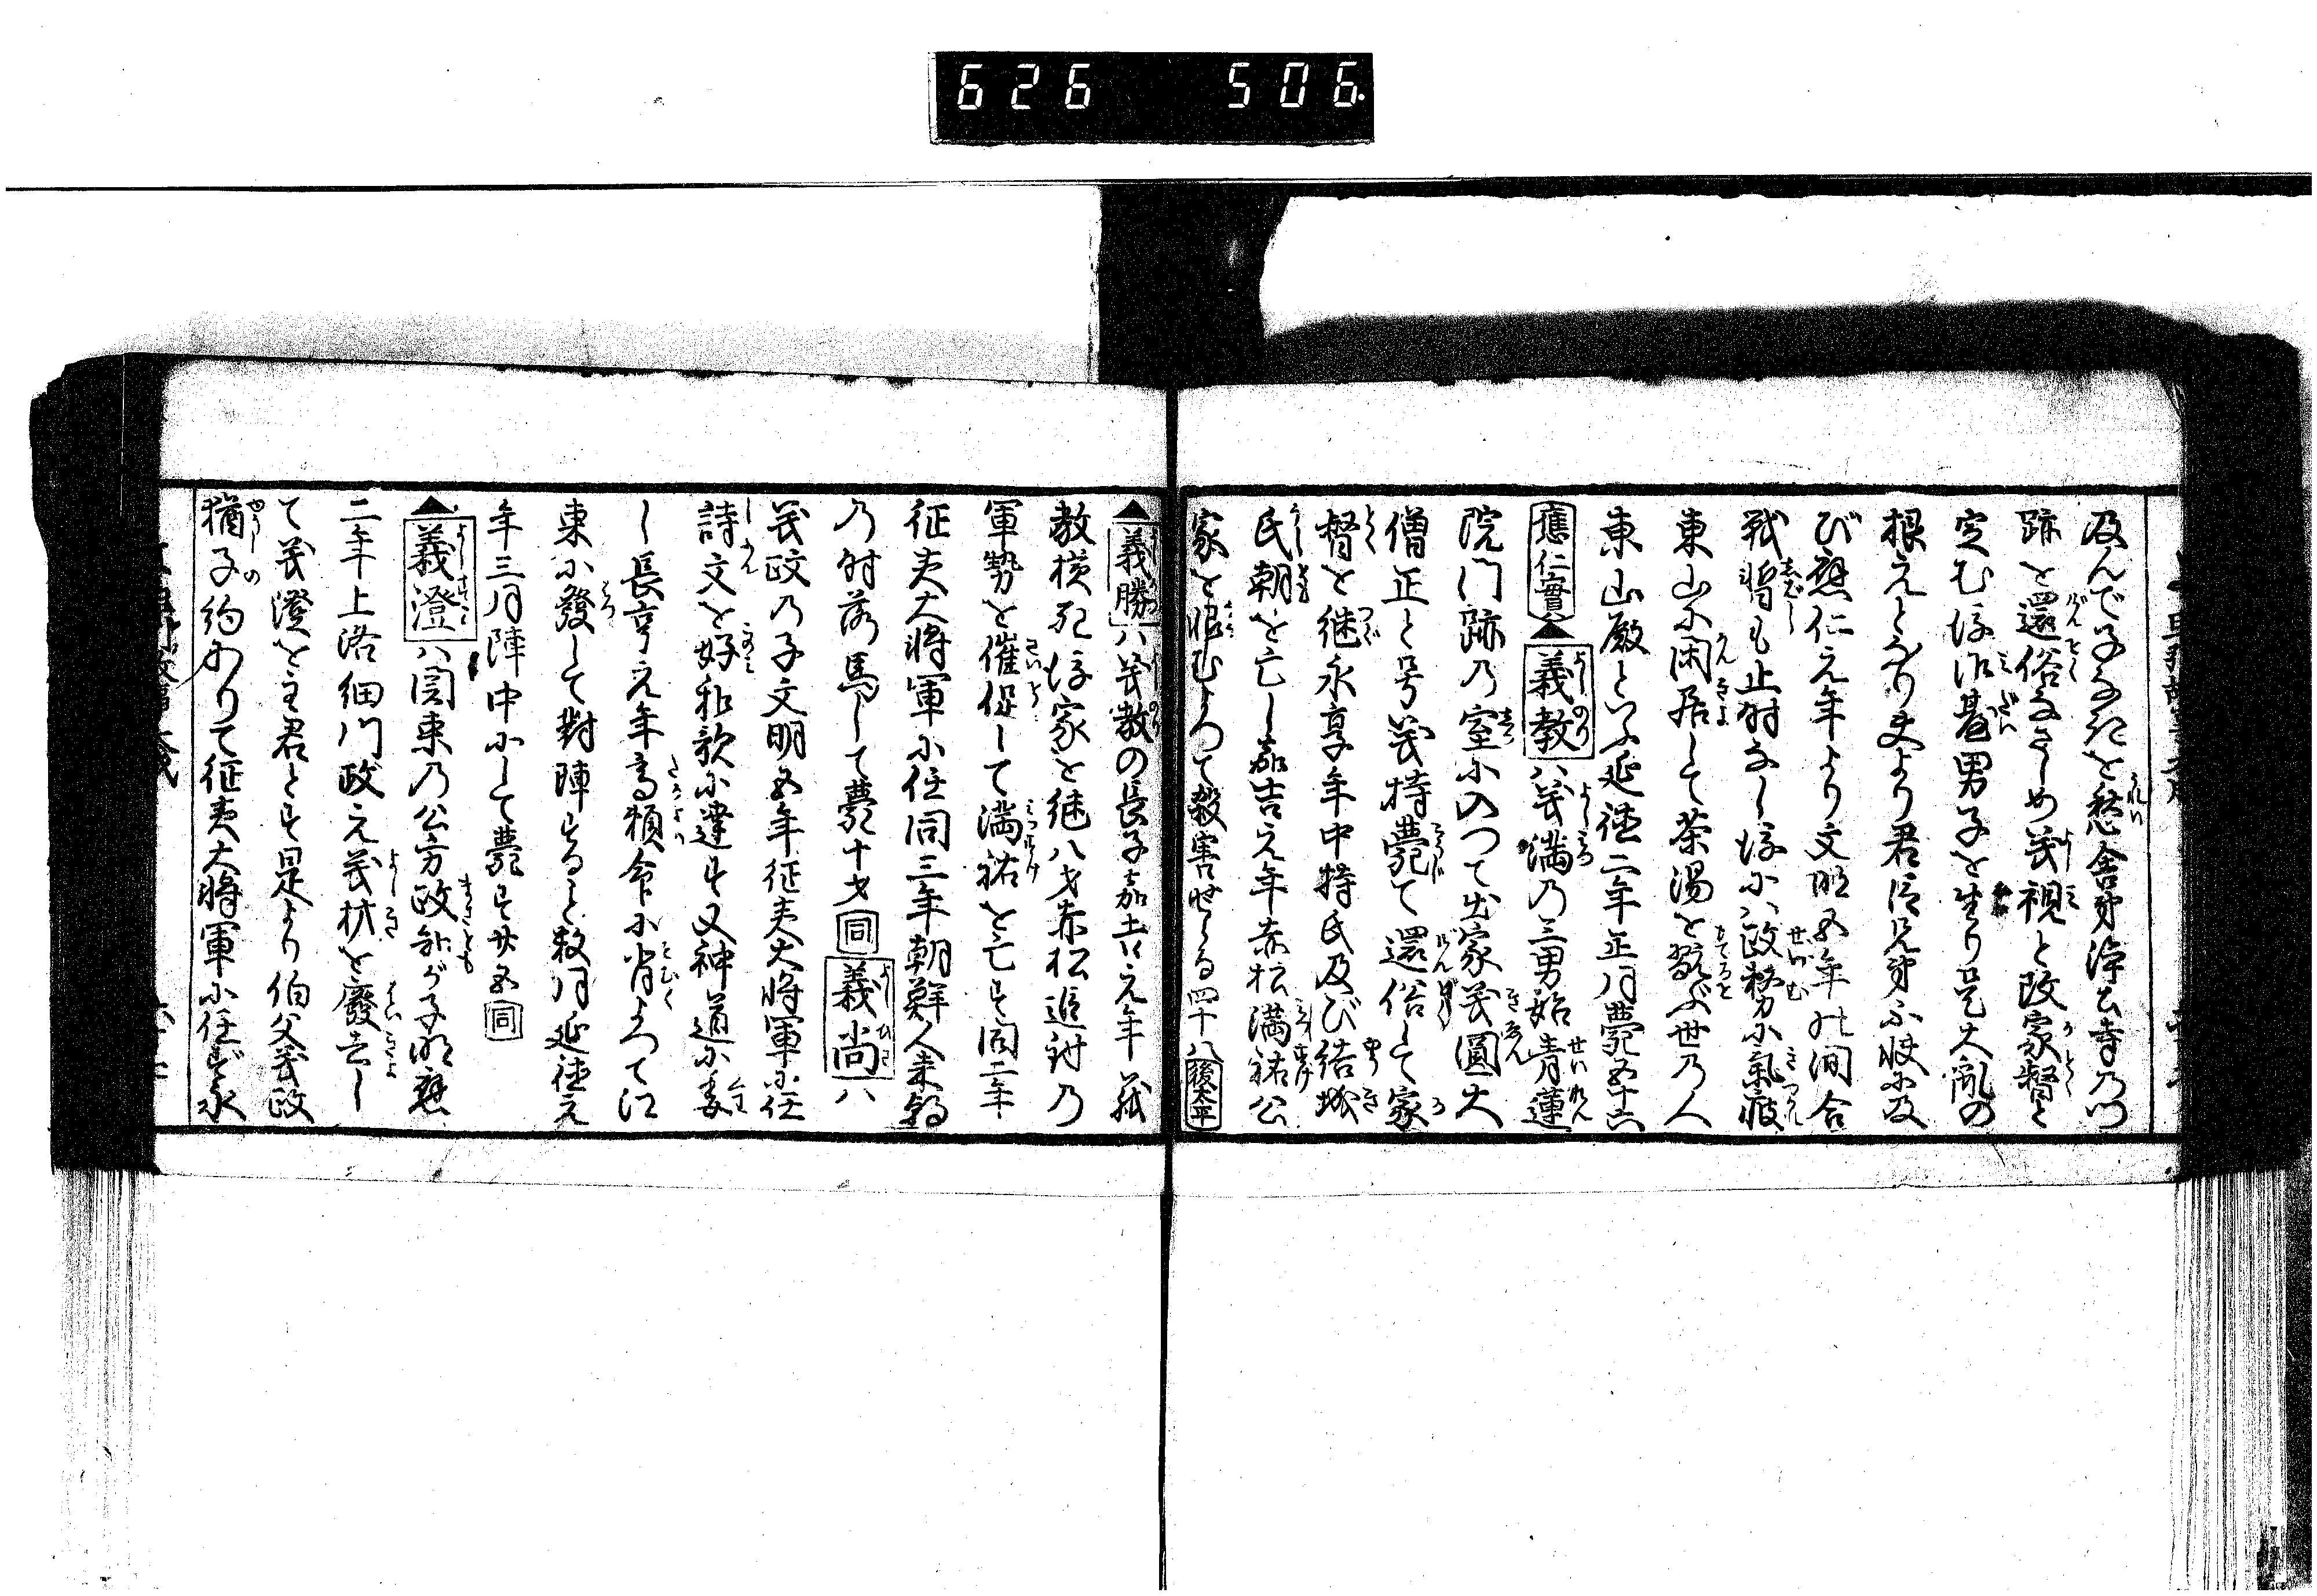 626 506
及んで子なきを愁舎弟浄土寺乃門
跡を還俗なさしめ義視と改家督と
定む後御臺男子を生り是大乱の
根元となり夫より君臣兄弟不快に及
び應仁元年より文明五年の間合
戦将も止時なし後に政務に氣疲
東山に閑居して茶湯を翫ぶ世乃人
東山殿といふ延徳二年正月薨五十六
應仁實▲義教ハ義満乃三男始青蓮
院門跡乃室に入つて出家義圓大
僧正と号義持薨て還俗して家
督を継永享年中持氏及び結城
氏朝を亡し嘉吉元年赤松満祐公
家を恨むよつて殺害せらる四十八後太平
▲義勝ハ義教の長子嘉吉元年義
教横死後家を継八才赤松追討乃
軍勢を催促して満祐を亡す同二年
征夷大将軍に任同三年朝鮮人来朝
乃時落馬して薨十才同義尚ハ
義政乃子文明五年征夷大将軍に任
詩文を好和歌に達す又神道に委
し長享元年高頼命に背よつて江
東に發して對陣する事数月延徳元
年三月陣中にして薨す廿五同
▲義澄ハ関東乃公方政知が子明應
二年上洛細川政元義材を廢去し
て義澄を主君とす是より伯父義政
猶子約ありて征夷大将軍に任ず永